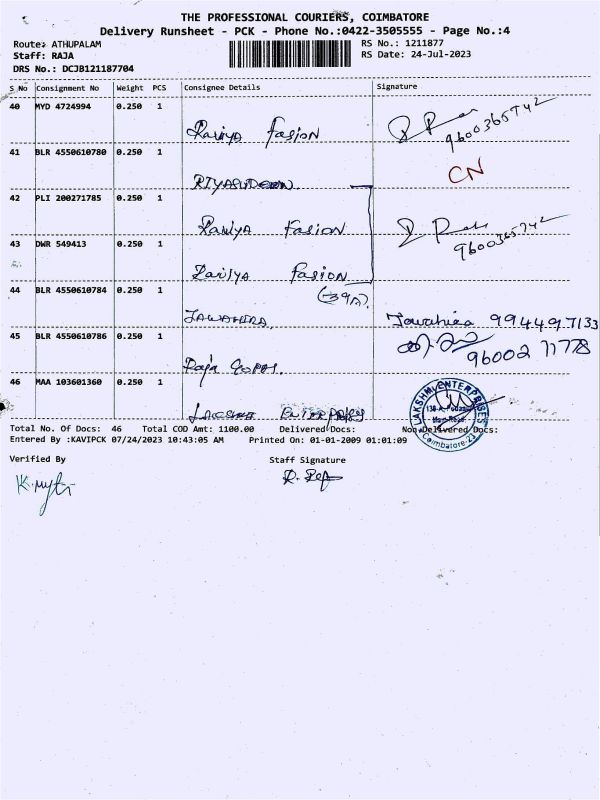 THE PROFESSIONAL COURIERS, COIMBATORE
Delivery Runsheet - PCK - Phone No.:0422-3505555 - Page No.:4
Route: ATHUPALAM
Staff: RAJA
DRS No.: DCJB121187704
RS No.: 1211877
RS Date: 24-Jul-2023
S No Consignment No Weight PCS Consignee Details Signature
40 MYD 4724994 0.250 1
Raniya Fasion 9600365742
41 BLR 4550610780 0.250 1
RIYASUDEEN CN
42 PLI 200271785 0.250 1
Raniya Fasion 9600365742
43 DWR 549413 0.250 1
Raniya Fasion
44 BLR 4550610784 0.250 1
JAWAHIRA Jawahira 9944497133
45 BLR 4550610786 0.250 1
Raja Gopal 96002 71778
46 MAA 103601360 0.250 1
Lakshmi Enterprises
LAKSHMI ENTERPRISES
Main Road
Coimbatore-23
Total No. Of Docs: 46 Total COD Amt: 1100.00 Delivered Docs: Non Delivered Docs:
Entered By :KAVIPCK 07/24/2023 10:43:05 AM Printed On: 01-01-2009 01:01:09
Verified By Staff Signature